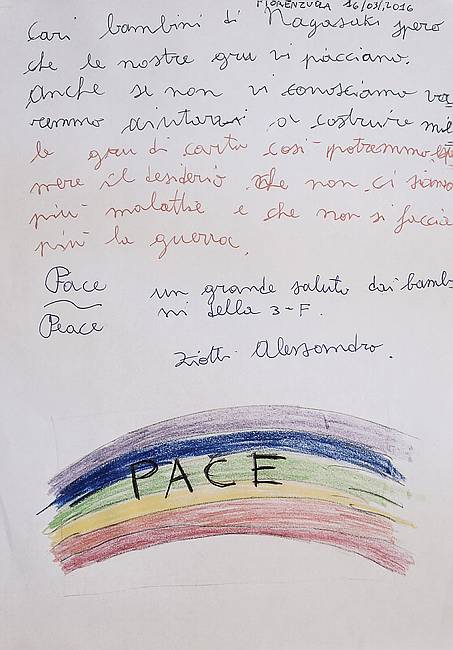 FIORENZUOLA 16/03/2016
Cari bambini di Nagasaki spero
che le nostre gru vi piacciano.
Anche se non vi conosciamo vo
remmo aiutarvi a costruire mil
le gru di carta così potremmo
mere il desiderio che non ci siano
più malattie e che non si faccia
più la guerra.
Pace
Peace
un grande saluto dai bambi
ni della 3-F.
Alessandro.
PACE